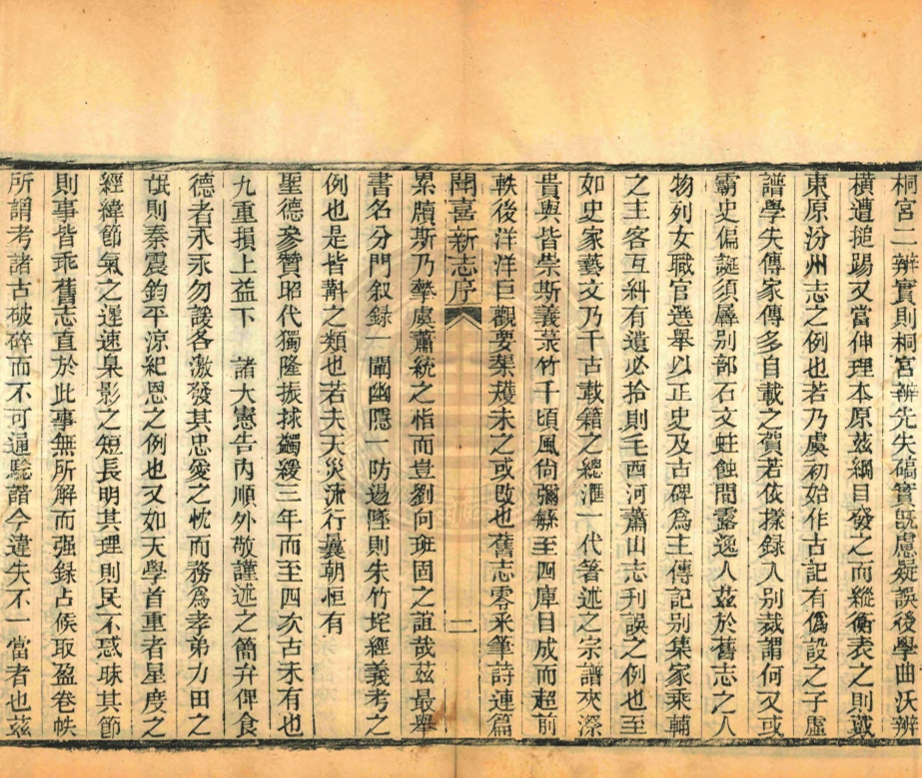 桐宮二辨實則桐宮辨先失碻實旣慮疑誤後學曲沃辨
橫遭搥踢又當伸理本原茲綱目發之而縱衡表之則戴
東原汾州志之例也若乃虞初始作古記有僞設之子虛
譜學失傳家傳多自載之賀若依㨾錄入別裁謂何又或
霸史偏誕須屏別部石文蛀蝕間露逸人茲於舊志之人
物列女職官選舉以正史及古碑爲主傳記別集家乘輔
之主客互糾有遺必拾則毛西河蕭山志刊誤之例也至
如史家藝文乃千古載籍之總滙一代箸述之宗譜夾漈
貴與皆崇斯義菉竹千頃風尙彌繇至四庫目成而超前
軼後洋洋巨觀要榘矱未之或改也舊志零釆筆詩連篇
聞喜新志序
二
累牘斯乃摯虞蕭統之恉而豈劉向班固之誼哉茲最舉
書名分門叙録一闡幽隱一防過墜則朱竹垞經義考之
例也是皆斠之類也若夫天災流行曩朝恒有
聖德參贊昭代獨隆振捄蠲緩三年而至四次古未有也
九重損上益下　諸大憲告內順外敬謹述之簡弁俾食
德者永永勿諼各激發其忠愛之忱而務爲孝弟力田之
氓則秦震鈞平涼紀恩之例也又如天學首重者星度之
經緯節氣之遲速臬影之短長明其理則民不惑昧其節
則事皆乖舊志直於此事無所解而强録占候取盈卷帙
所謂考諸古破碎而不可通驗諸今違失不一當者也茲